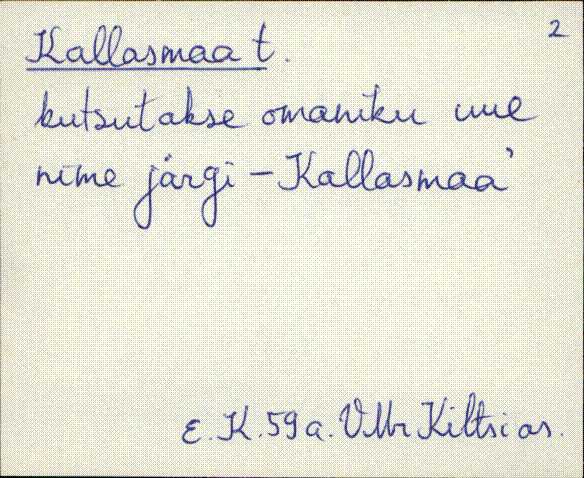 2
Kallasmaa t.
kutsutakse omaniku uue
nime järgi – Kallasmaa'
E. K. 59 a. VMr Kiltsi as.